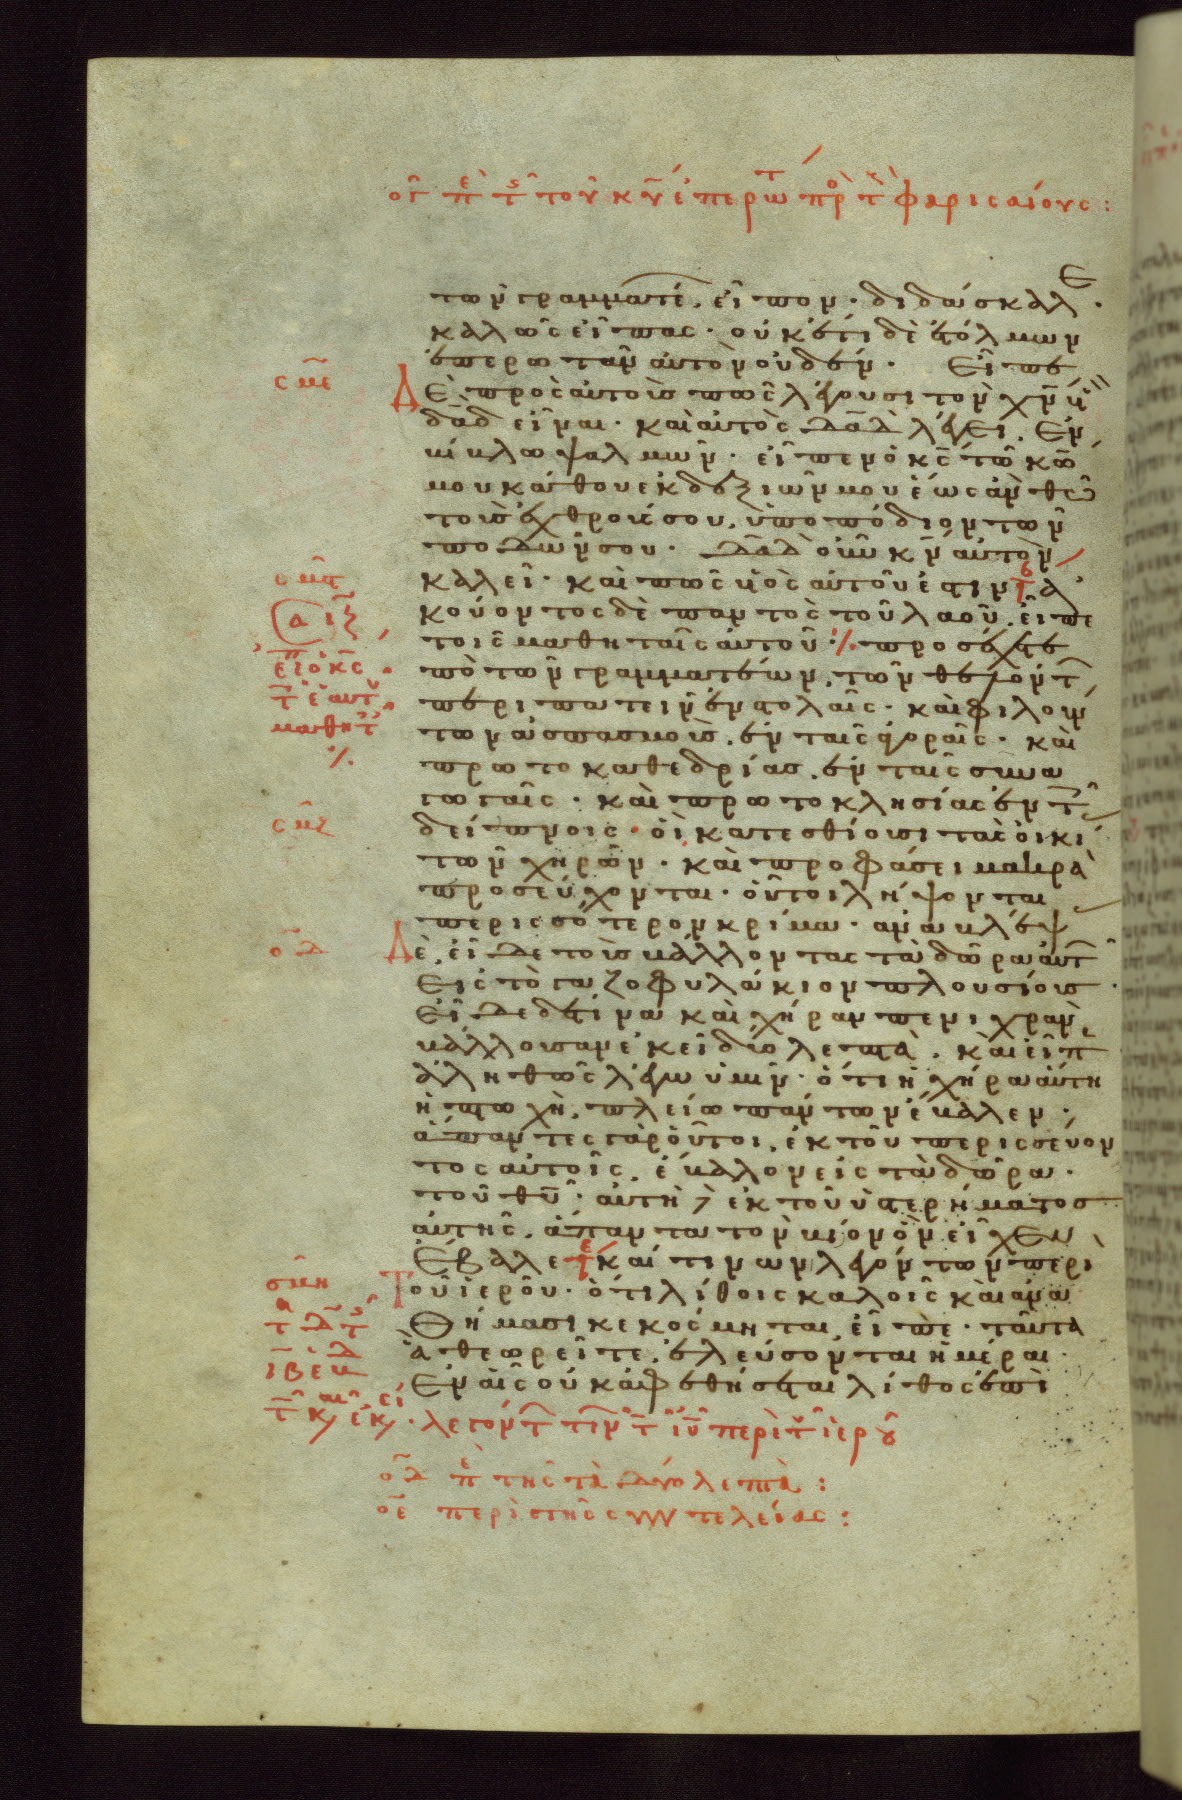 ογ π̅ε τ̅ς τοῦ κ̅υ ἐπερωτ πρὸ τ̅ φαρισαίους :
τῶν γραμματέ, εἶπον · διδάσκαλε ·
καλῶς εἶπας · οὐκέτι δὲ ἐτόλμων
ἐπερωτᾶν αὐτὸν οὐδέν · Εἶπε
σμε
Δὲ πρὸς αὐτούς πῶς λέγουσι τὸν χ̅ν υ̅ν
δα̅δ εἶναι · καὶ αὐτὸς δα̅δ λέγει · Ἐν
βίβλω ψαλμῶν · εἶπεν ὁ κ̅ς τῶ κ̅ω
μου κάθου ἐκ δεξιῶν μου ἕως ἂν θῶ
τοὺς ἐχθρούς σου, ὑποπόδιον τῶν
ποδῶν σου · δα̅δ οὖν κ̅ν αὐτὸν
σμς
καλεῖ · καὶ πῶς υἱὸς αὐτοῦ ἐστιν · ἀ
αιζ
κούοντος δὲ παντὸς τοῦ λαοῦ, εἶπε
τοῖς μαθηταῖς αὐτοῦ · προσέχετε
εἶπ ὁ κ̅ς
τ̅ ἑαυτ
μαθητ
ἀπὸ τῶν γραμματέων, τῶν θελόντ
περιπατεῖν ἐν στολαῖς · καὶ φιλούν
των ἀσπασμοὺς, ἐν ταῖς ἀγοραῖς · καὶ
πρωτοκαθεδρίας, ἐν ταῖς συνα
γωγαῖς · καὶ πρωτοκλησίας ἐν τ
σμζ
δείπνοις · οἱ κατεσθίουσι τὰς οἰκί
τῶν χηρῶν · καὶ προφάσει μακρὰ
προσεύχονται · οὗτοι λήψονται
περισσότερον κρίμα · ἀναβλέψ
οδ
Δὲ, εἶδε τοὺς βάλλοντας τὰ δῶρα αὐτ
Εἰς τὸ γαζοφυλάκιον πλουσίους ·
Εἶδε δέ τινα καὶ χήραν πενιχρὰν
βάλλουσαν ἐκεῖ δύο λεπτὰ · καὶ εἶπ
ἀληθῶς λέγω ὑμῖν · ὅτι ἡ χήρα αὕτη
ἡ πτωχὴ, πλείω πάντων ἔβαλεν ·
ἅπαντες γὰρ οὗτοι, ἐκ τοῦ περισσεύον
τος αὐτοῖς, ἔβαλον εἰς τὰ δῶρα ·
τοῦ θ̅υ · αὕτη δὲ ἐκ τοῦ ὑστερήματος
αὐτῆς, ἅπαντα τὸν βίον ὃν εἶχεν
Ἔβαλε · καί τινων λεγόντων περὶ
σμη
Τοῦ ἱεροῦ · ὅτι λίθοις καλοῖς καὶ ἀνα
Θήμασι κεκόσμηται, εἶπε · ταῦτα
ἃ θεωρεῖτε, ἐλεύσονται ἡμέραι ·
Ἐν αἷς οὐκ ἀφεθήσεται λίθος ἐπὶ
τ̅ κ̅ ἐκ · λεγόντ τινῶν τ̅ ι̅υ περὶ τ̅ ἱεροῦ
οδ π̅ε τῆς τὰ δύο λεπτὰ :
οε περὶ τῆς συντελείας :